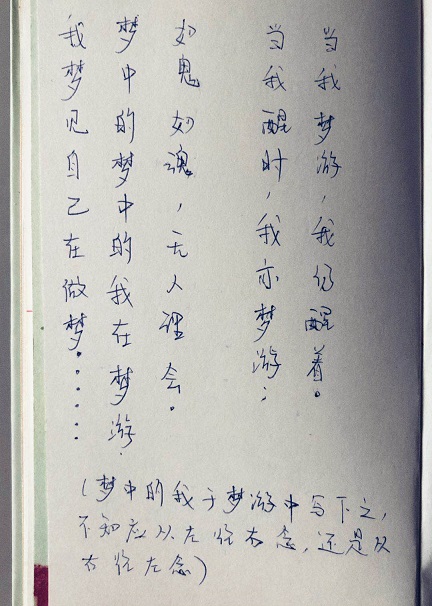 当我梦游，我仍醒着。
当我醒时，我亦梦游；
如鬼如魂，无人理会。
梦中的梦中的我在梦游.
我梦见自己在做梦······
(梦中的我于梦游中写下之,
不知应从左往右念,还是从
右往左念)